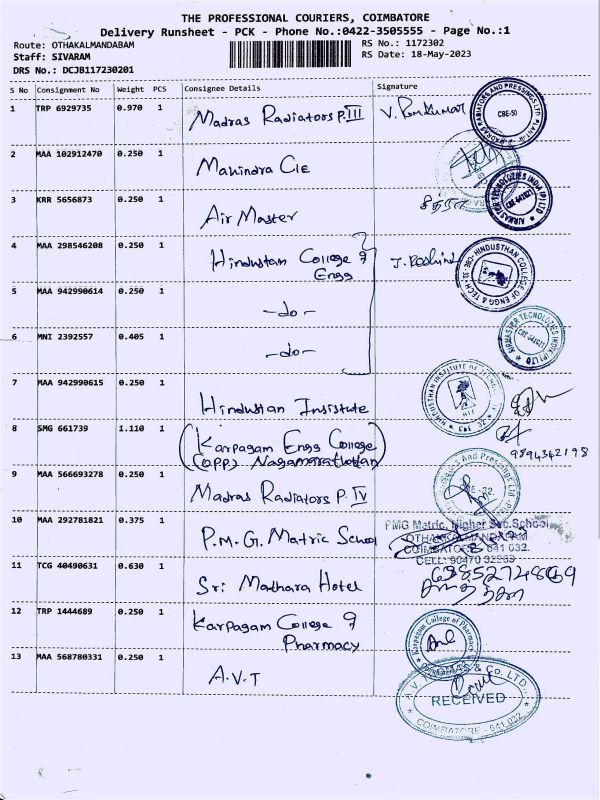 THE PROFESSIONAL COURIERS, COIMBATORE
Delivery Runsheet - PCK - Phone No.:0422-3505555 - Page No.:1
Route: OTHAKALMANDABAM
RS No.: 1172302
Staff: SIVARAM
RS Date: 18-May-2023
DRS No.: DCJB117230201
S No Consignment No Weight PCS Consignee Details Signature
1 TRP 6929735 0.970 1 Madras Radiators P. III V. Ramkumar
CBE-50
2 MAA 102912470 0.250 1 Mahindra CIE
3 KRR 5656873 0.250 1 Air Master
AIRMASTER TECNOLOZIES INDIA (P) LTD
CBE-641021
4 MAA 298546208 0.250 1 Hindustan College of
Engg
HINDUSTHAN COLLEGE OF ENGG & TECH
5 MAA 942990614 0.250 1 -do-
6 MNI 2392557 0.405 1 -do-
AIRMASTER TECNOLOZIES INDIA (P) LTD
CBE-641021
7 MAA 942990615 0.250 1 Hindustan Insistute
HINDUSTHAN INSTITUTE OF
8 SMG 661739 1.110 1 (Karpagam Engg College)
(opp) Nagamarathottam
9894342198
9 MAA 566693278 0.250 1 Madras Radiators P. IV
10 MAA 292781821 0.375 1 P.M.G. Matric School
PMG Matric. Higher Sec.School
OTHAKALMANDAPAM
COIMBATORE - 641 032.
11 TCG 40490631 0.630 1 Sri Mathara Hotel
12 TRP 1444689 0.250 1 Karpagam College of
Pharmacy
Karpagam College of Pharmacy
13 MAA 568780331 0.250 1 A.V.T
A.V. THOMAS & Co. LTD.,
RECEIVED
COIMBATORE - 641 032.